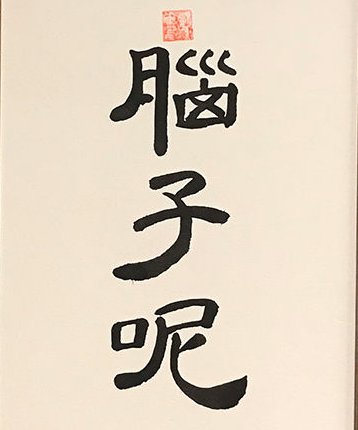 腦子呢